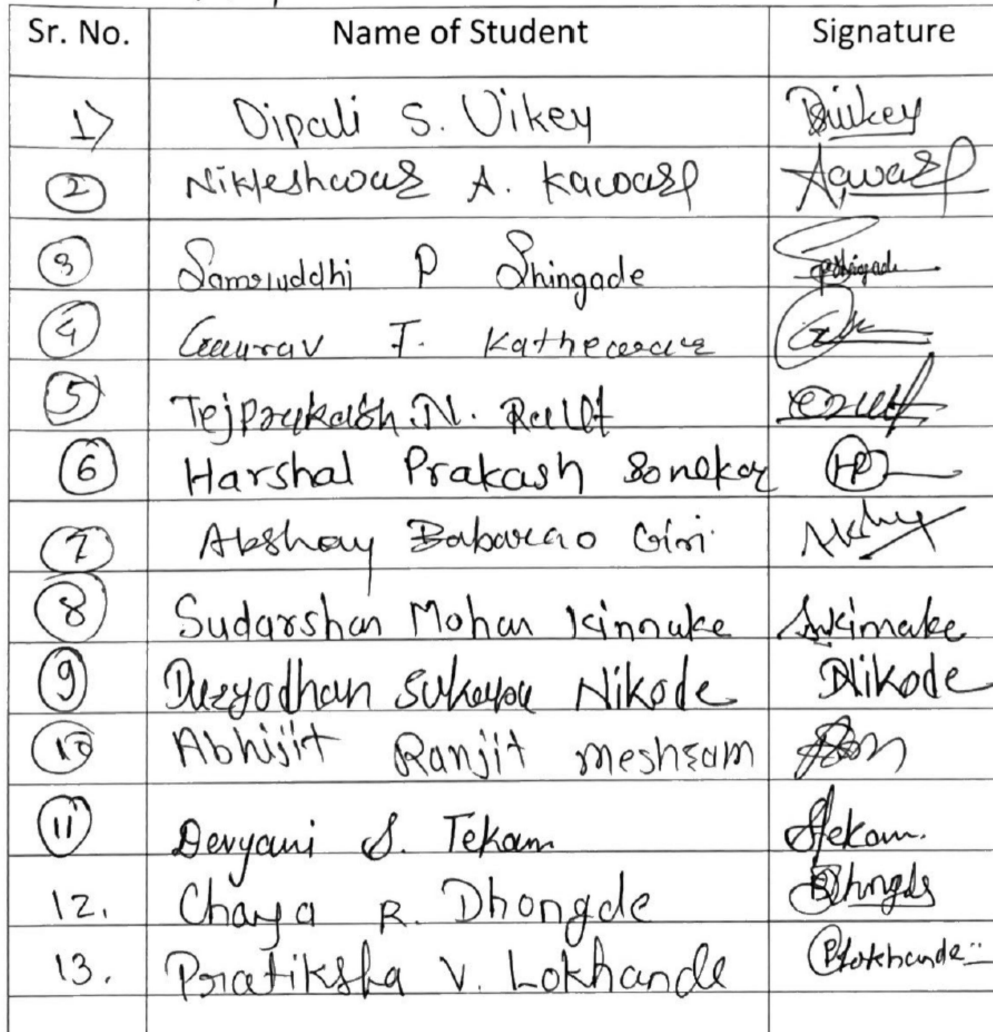 Sr. No. Name of Student Signature
1) Dipali S. Uikey DUikey
2 Nikleshwar A. Kawarp
3 Samruddhi P Shingade
4 Gaurav J.
5 Tejprakash N. Raut
6 Harshal Prakash Sonekar HP
7 Akshay Babarao Giri
8 Sudarshan Mohan Kinnake
9 Duryodhan Nikode DNikode
10 Abhijit Ranjit meshram
11 Devyani S. Tekam STekam.
12. Chaya R. Dhongde
13. Pratiksha V. Lokhande PLokhande